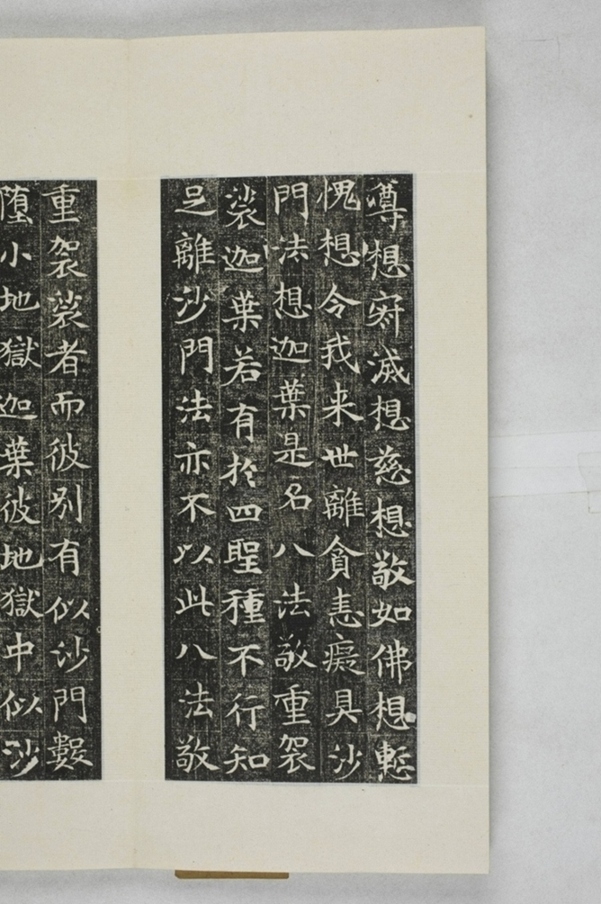 尊想㝛滅想慈想敬如佛想慙
愧想令我来世離貪恚癡具沙
門法想迦葉是名八法敬重袈
裟迦葉若有於四聖種不行知
足離沙門法亦不以此八法敬
重袈裟者而彼别有似沙門數
堕小地獄迦葉彼地獄中似沙